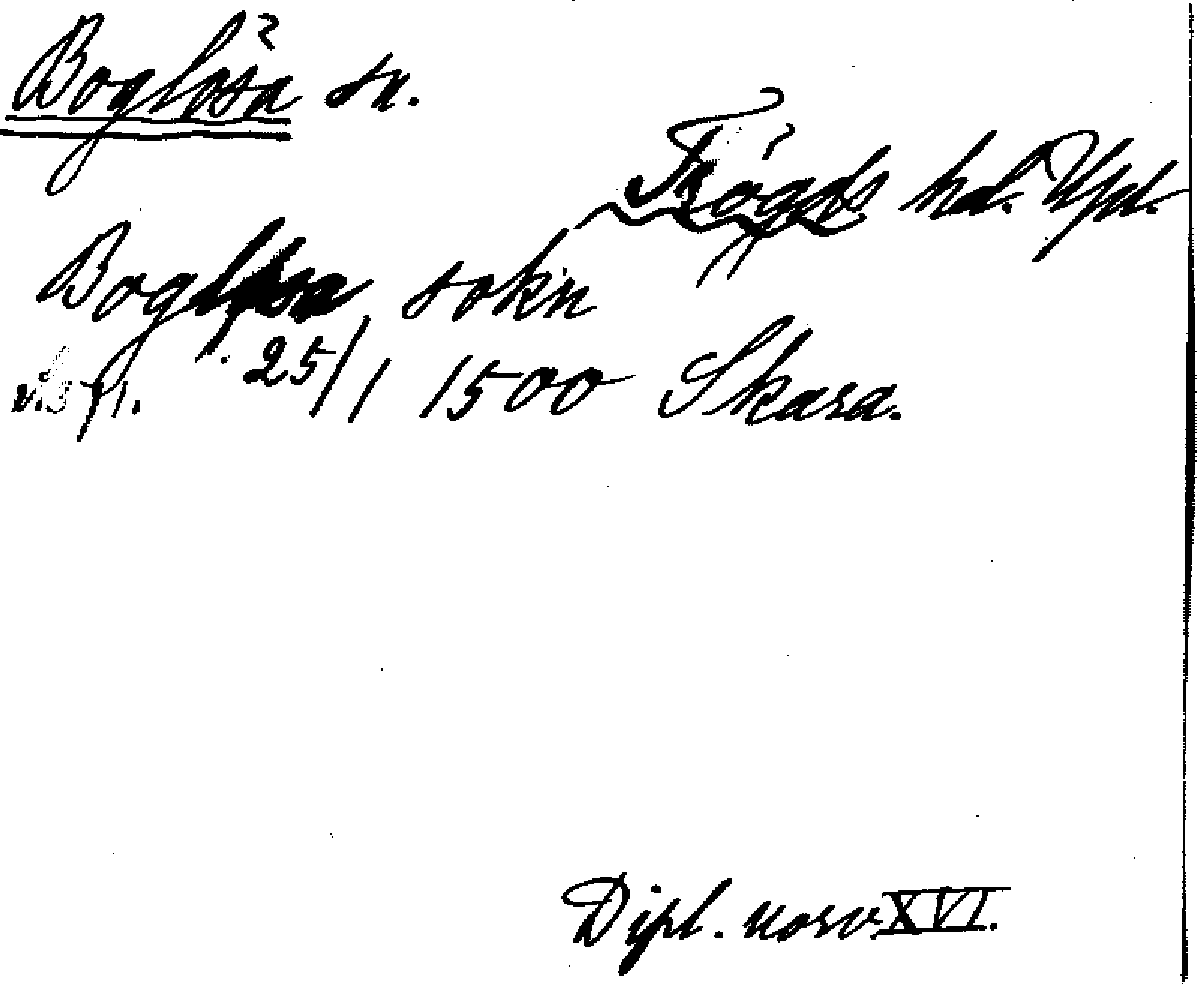 Boglösa sn.
Trögds hd. Upl.
Boglosa sokn
25/1 1500 Skara.
Dipl. norv. XVI.